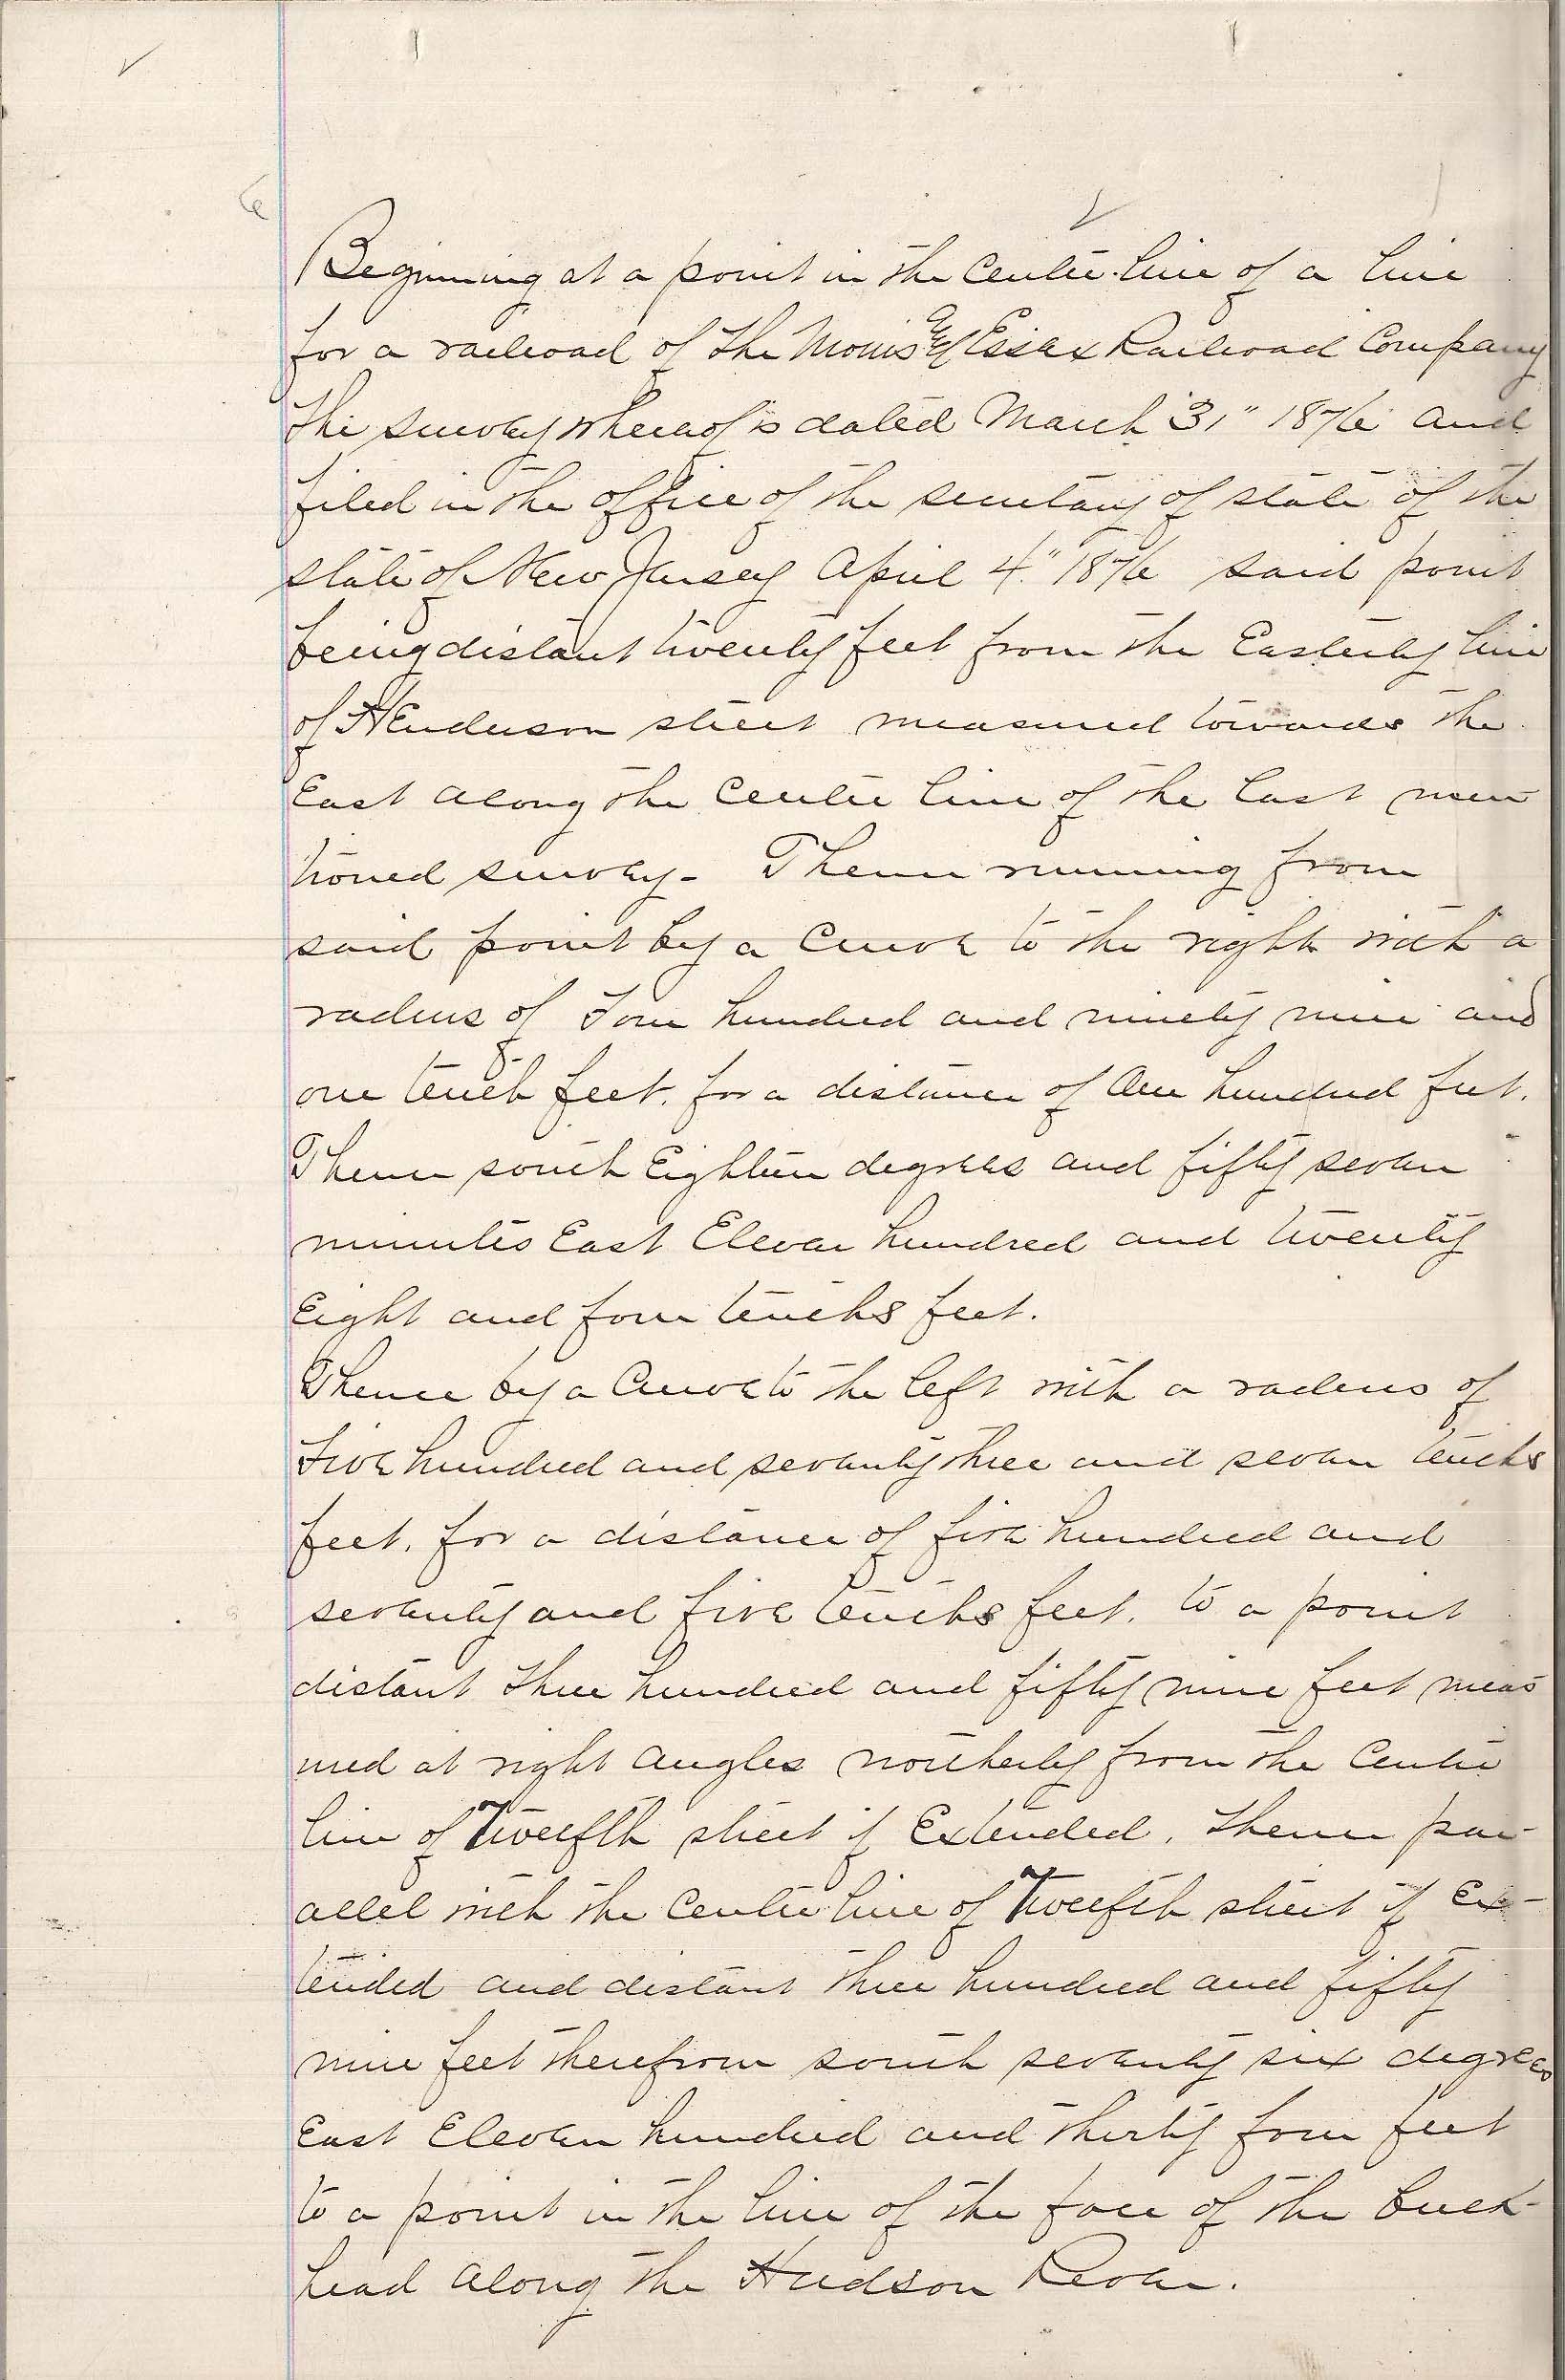 Beginning at a point in the centre line of a line
for a railroad of the Morris & Essex Railroad Company
the survey whereof is dated March 31" 1876 and
filed in the office of the secretary of state of the
state of New Jersey April 4" 1876 said point
being distant twenty feet from the Easterly line
of Henderson street measured towards the
East along the centre line of the last men
tioned survey - Thence running from
said point by a curve to the right with a
radius of Four hundred and ninety nine and
one tenth feet. for a distance of One hundred feet.
Thence south Eighteen degrees and fifty seven
minutes East Eleven hundred and twenty
Eight and four tenths feet.
Thence by a Curve to the left with a radius of
Five hundred and seventy three and seven tenths
feet. for a distance of five hundred and
seventy and five tenths feet. to a point
distant three hundred and fifty nine feet meas
ured at right angles northerly from the centre
line of Twelfth street if Extended. Thence par-
allel with the centre line of Twelfth street if Ex-
tended and distant three hundred and fifty
nine feet therefrom south seventy six degrees
East Eleven hundred and thirty four feet
to a point in the line of the face of the bulk-
head along the Hudson River.